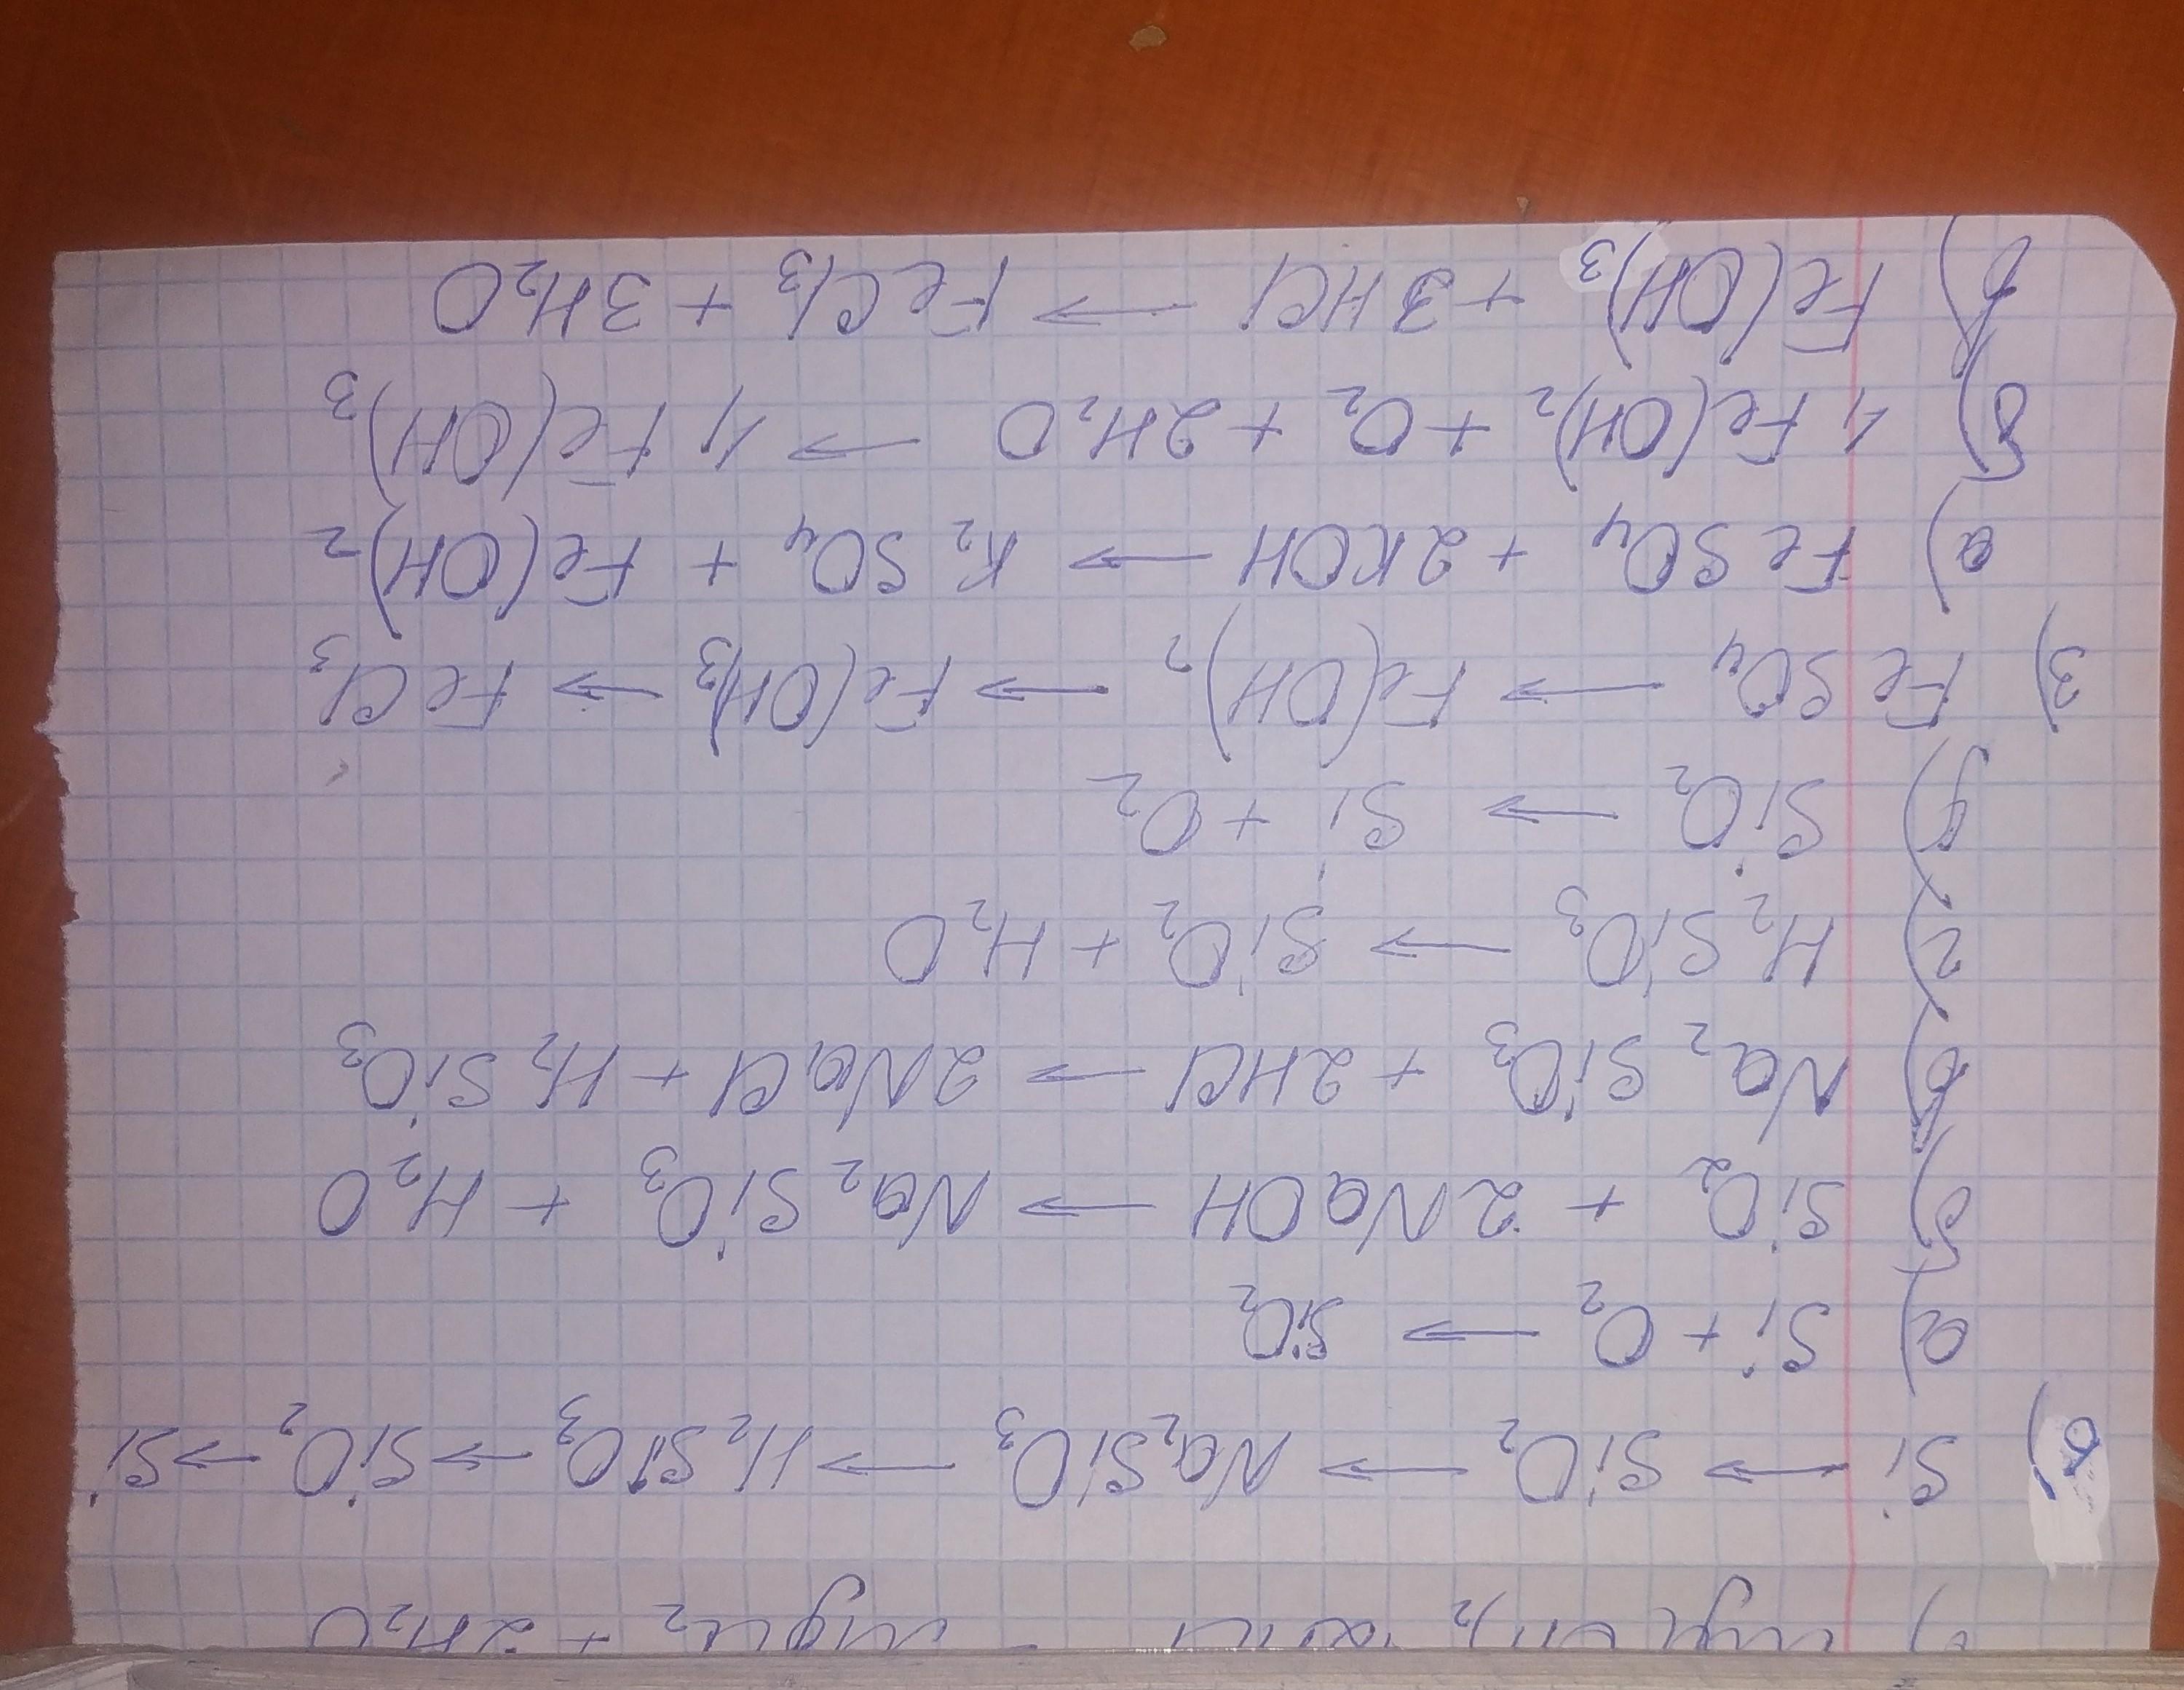 ) Mg(OH)₂ + 2HCl → MgCl₂ + 2H₂O
2) Si → SiO₂ → Na₂SiO₃ → H₂SiO₃ → SiO₂ → Si
а) Si + O₂ → SiO₂
б) SiO₂ + 2NaOH → Na₂SiO₃ + H₂O
в) Na₂SiO₃ + 2HCl → 2NaCl + H₂SiO₃
г) H₂SiO₃ → SiO₂ + H₂O
д) SiO₂ → Si + O₂
3) FeSO₄ → Fe(OH)₂ → Fe(OH)₃ → FeCl₃
а) FeSO₄ + 2KOH → K₂SO₄ + Fe(OH)₂
б) 4Fe(OH)₂ + O₂ + 2H₂O → 4Fe(OH)₃
в) Fe(OH)₃ + 3HCl → FeCl₃ + 3H₂O